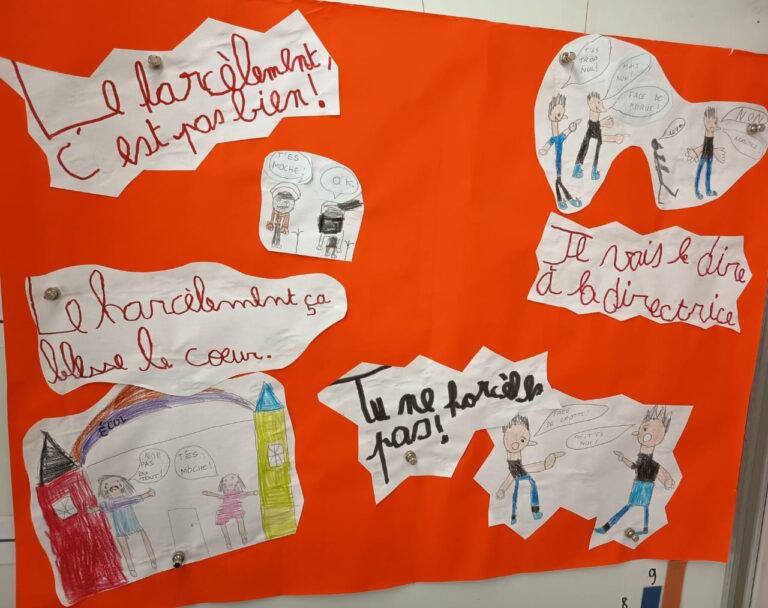 Le harcèlement,
C'est pas bien!
T'ES
MOCHE!
OK
T'ES
TROP
NUL!
MAIS
NUL!
FACE DE
NON
Je vais le dire
à la directrice
Le harcèlement ça
blesse le coeur.
ÉCOL
NON
PAS
DU
TOUT!
T'ES
MOCHE!
Tu ne harcèles
pas!
FACE
DE
NUL!
9
8